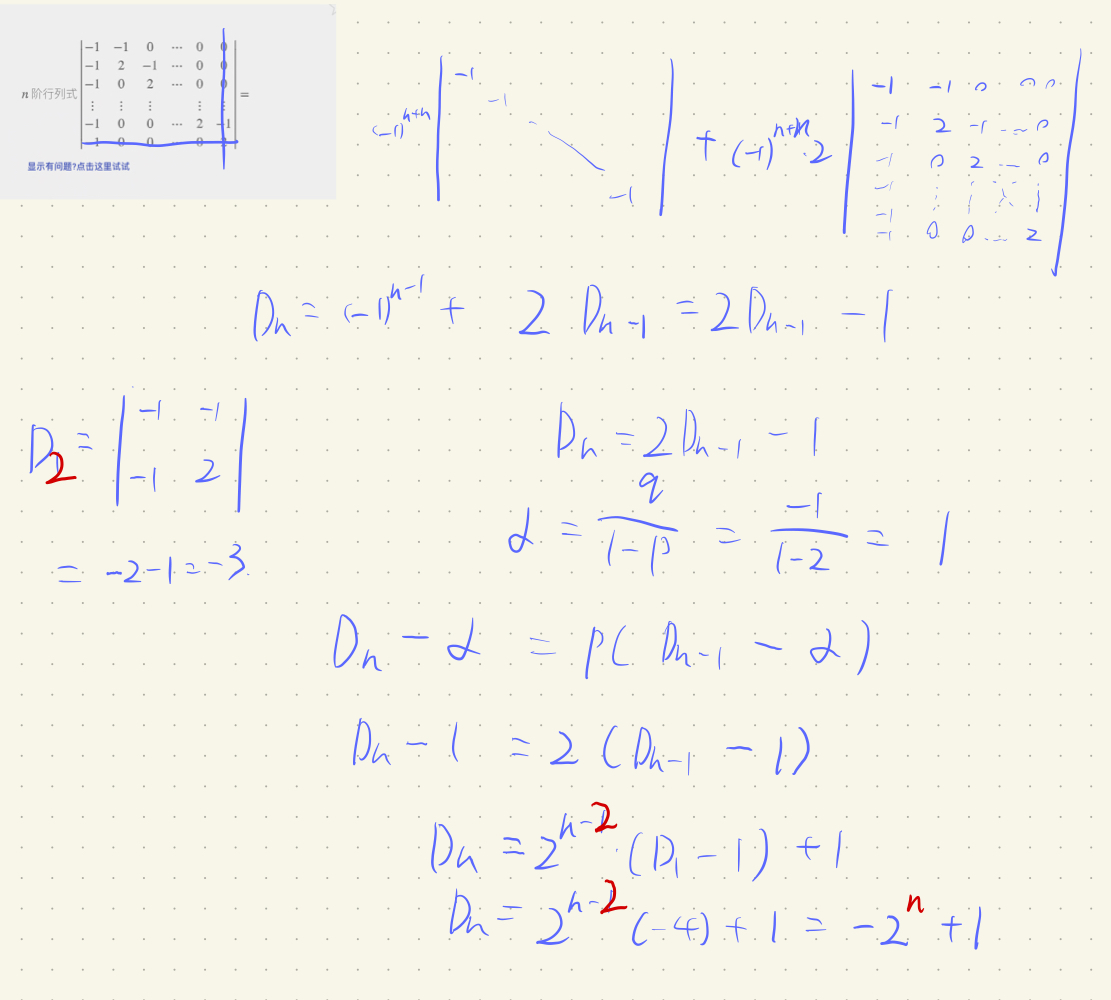 n 阶行列式 | -1 -1 0 ⋯ 0 0 | =
-1 2 -1 ⋯ 0 0
-1 0 2 ⋯ 0 0
⋮ ⋮ ⋮ ⋮ ⋮
-1 0 0 ⋯ 2 -1
显示有问题?点击这里试试
(-1)^{n+n} | -1 -1 -1 | + (-1)^{n+n}·2 | -1 -1 0 0 0 |
-1 2 -1 ... 0
-1 0 2 ... 0
-1 ⋮ ⋮
-1
-1 0 0 ... 2
D_n = (-1)^{n-1} + 2 D_{n-1} = 2D_{n-1} - 1
D_2 = | -1 -1 |
-1 2
= -2-1 = -3
D_n = 2D_{n-1} - 1
α = q/(1-p) = -1/(1-2) = 1
D_n - α = p( D_{n-1} - α )
D_n - 1 = 2 (D_{n-1} - 1)
D_n = 2^{n-2} · (D_1 - 1) + 1
D_n = 2^{n-2} (-4) + 1 = -2^n + 1